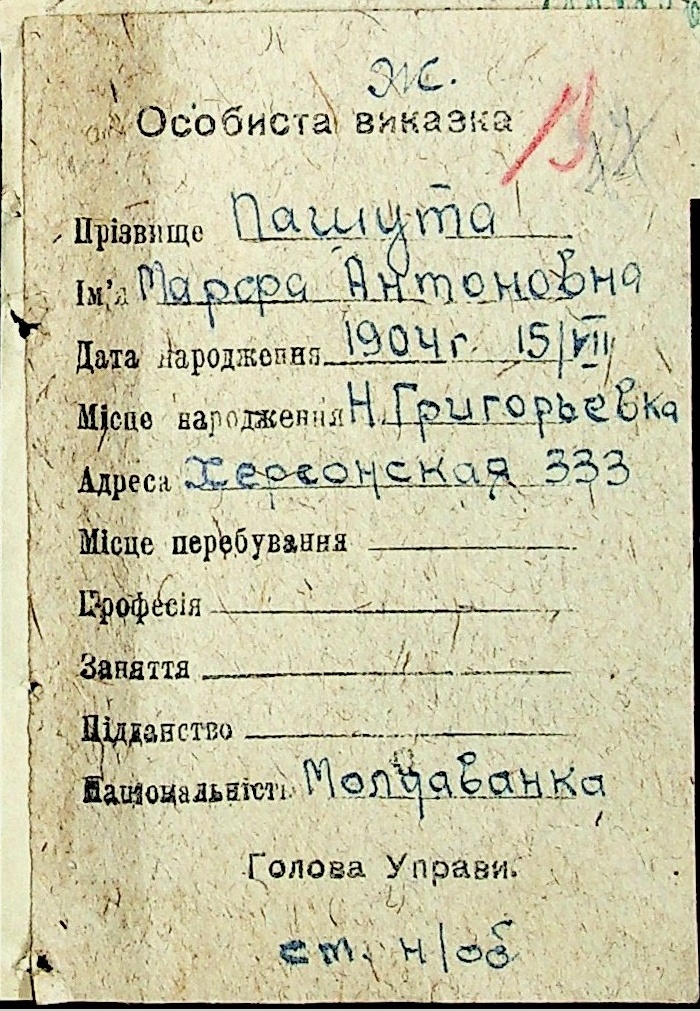 Ж.
Особиста виказка
Прізвище Пашута
Ім'я Марфа Антоновна
Дата народження 1904 г. 15/VII
Місце народження Н Григорьевка
Адреса Херсонская 333
Місце перебування
Професія
Заняття
Підданство
Національність Молдаванка
Голова Управи.
ст. н/об